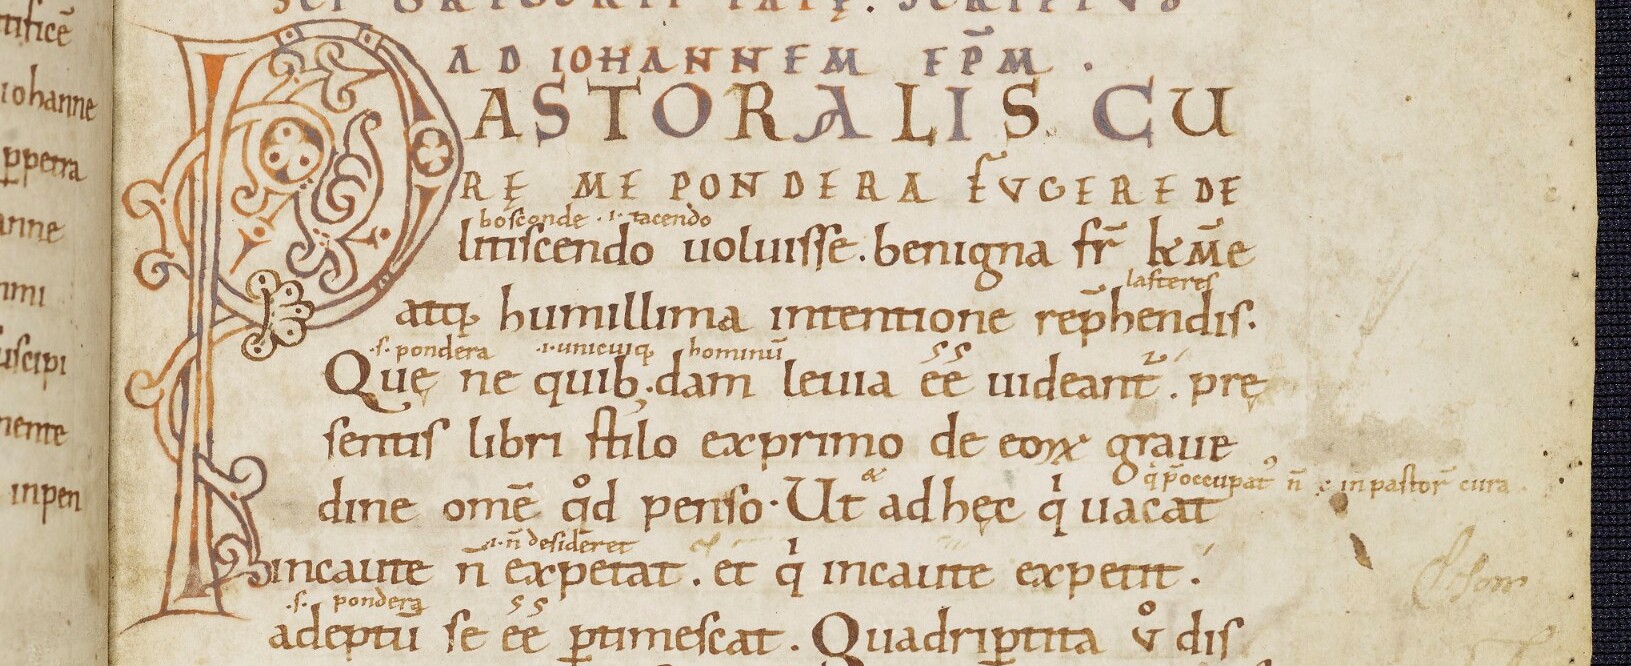 tificē
iohanne
ꝑpetra
anne
nmi
uscipi
nente
inpen
SCI GREGORII PAPĘ. SCRIPTUS
AD IOHANNEM EP̄M .
PASTORALIS CU
RĘ ME PONDERA FUGERE DE
.i. tacendo
litiscendo uoluisse. benigna fr̄ kr̄me
lasteres
atq; humillima intentione rep̄hendis.
.s. pondera .i. unicuiq; hominū
Quę ne quib;dam leuia ee uideant̄. prę
sentis libri stilo exprimo de eoꝝ graue
q̇ p̄occupat᷒ n̄ ē in pastor̄ cura.
dine omē qd̊ penso. Ut & adhęc q̇ uacat
.i. n̄ desideret
incaute n̄ expetat. et q̇ incaute expetit.
.s. pondera
adeptū se ee ꝑtimescat. Quadriꝑtita v̊ dis